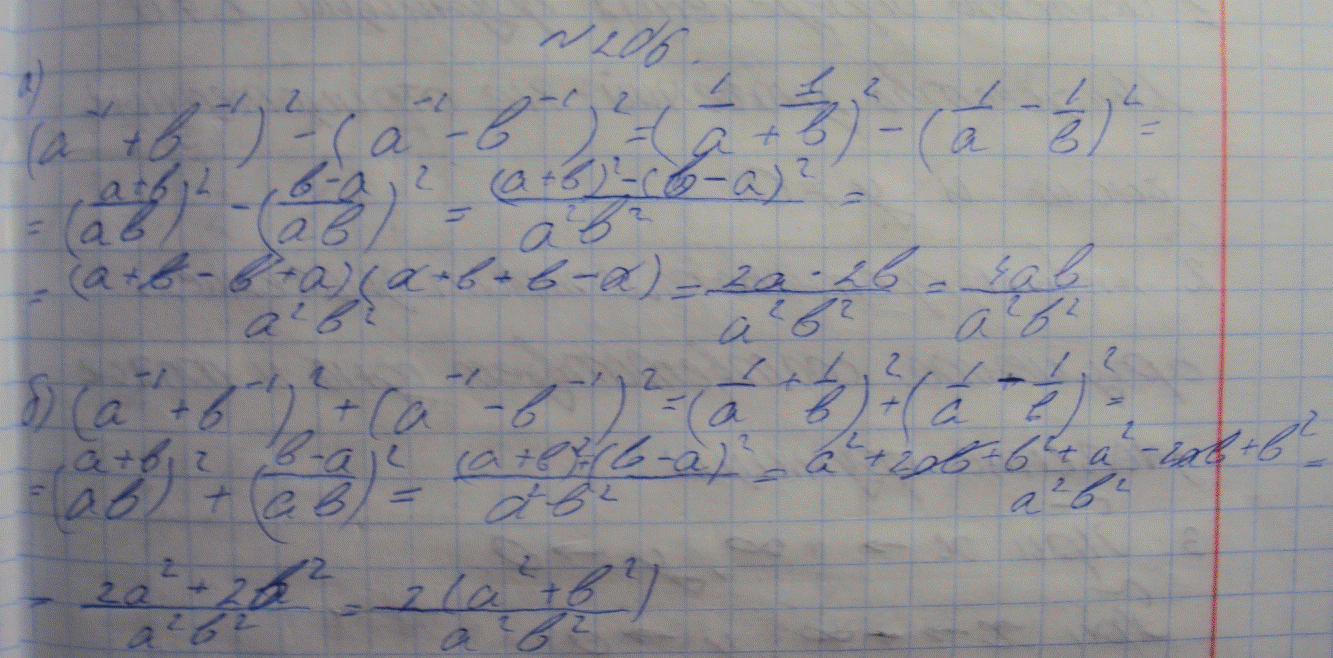 №206.
а)
(a⁻¹ + b⁻¹)² - (a⁻¹ - b⁻¹)² = (1/a + 1/b)² - (1/a - 1/b)² =
= ((a+b)/(ab))² - ((b-a)/(ab))² = ((a+b)² - (b-a)²)/(a²b²) =
= ((a+b-b+a)(a+b+b-a))/(a²b²) = (2a·2b)/(a²b²) = (4ab)/(a²b²)
б) (a⁻¹ + b⁻¹)² + (a⁻¹ - b⁻¹)² = (1/a + 1/b)² + (1/a - 1/b)² =
= ((a+b)/(ab))² + ((b-a)/(ab))² = ((a+b)² + (b-a)²)/(a²b²) = (a² + 2ab + b² + a² - 2ab + b²)/(a²b²) =
= (2a² + 2b²)/(a²b²) = (2(a² + b²))/(a²b²)